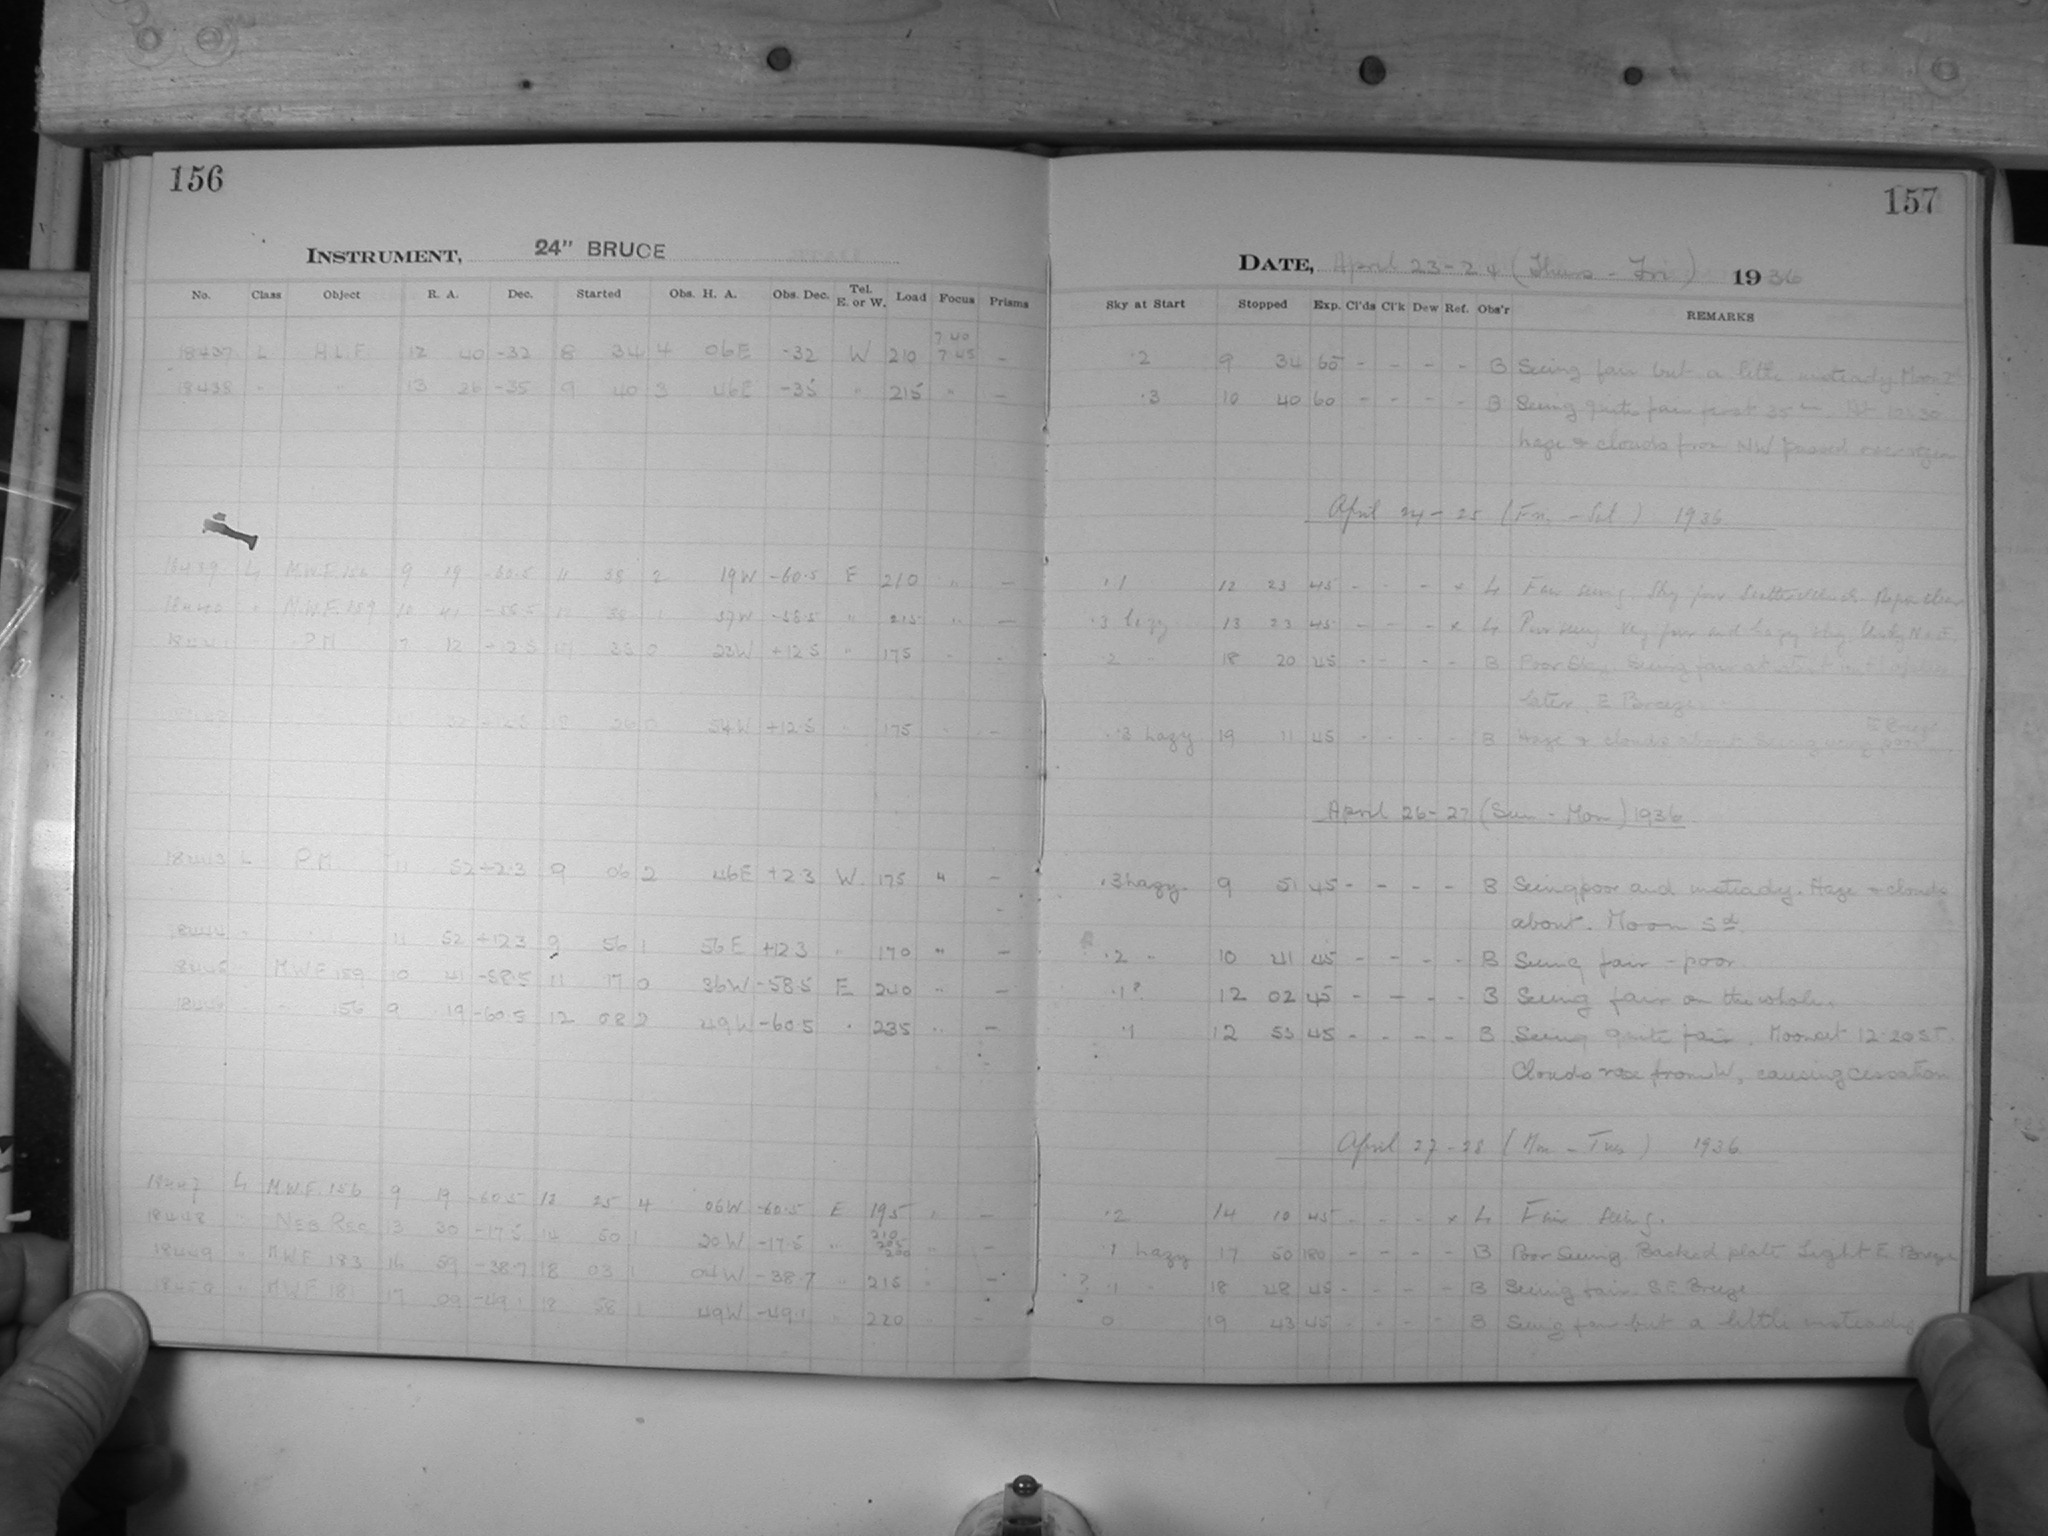 156
INSTRUMENT, 24" BRUCE
No. Class Object R. A. Dec. Started Obs. H. A. Obs. Dec. Tel. E. or W. Load Focus Prisms
7 40
18437 L 12 40 -32 8 34 4 06E -32 W 210 7 45 -
18438 " " 13 26 -35 9 40 3 46E -35 " 215 " -
18439 M.W.F. 156 9 19 -60.5 11 38 2 19W -60.5 E 210 " -
18440 " M.W.F. 159 10 41 -58.5 12 38 1 57W -58.5 " 215 " -
18441 P.M. 17 12 +12.5 17 35 0 23W +12.5 " 175
54W +12.5 175 -
18443 L P.M. 11 52 +2.3 9 06 2 46E +2.3 W. 175 " -
18444 " " 11 52 +12.3 9 56 1 56E +12.3 " 170 " -
18445 M.W.F. 159 10 41 -58.5 11 17 0 36W -58.5 E 240 " -
18446 " 156 9 19 -60.5 12 08 2 49W -60.5 " 235 " -
18447 M.W.F. 156 9 19 -60.5 12 25 4 06W -60.5 E 195 " -
18448 " NEB REG 13 30 -17.5 14 50 1 20W -17.5 " 210 205 200 " -
18449 " M.W.F. 183 16 59 -38.7 18 03 1 04W -38.7 " 215 -
18450 " M.W.F. 181 17 09 -49.1 18 58 1 49W -49.1 " 220 -
157
DATE, April 23-24 (Thurs - Fri) 1936
Sky at Start Stopped Exp. Cl'ds Cl'k Dew Ref. Obs'r REMARKS
.2 9 34 60 - - - - B Seeing fair but a little unsteady. Moon 2d
.3 10 40 60 - - - - B Seeing quite fair first 35m. At 10.30
haze & clouds from NW passed over
April 24-25 (Fri. - Sat) 1936
.1 12 23 45 - - - x Fair seeing. Sky fair
.3 hazy 13 23 45 - - - x Poor seeing Very poor and hazy sky.
.2 " 18 20 45 - - - - B Poor Sky. Seeing fair at start
later. E Breeze.
E Breeze
.3 hazy 19 11 45 - - - - B Haze & clouds about Seeing very poor
April 26-27 (Sun - Mon) 1936
.3 hazy. 9 51 45 - - - - B Seeing poor and unsteady. Haze & clouds
about. Moon 5d.
.2 - 10 41 45 - - - - B Seeing fair - poor.
.1? 12 02 45 - - - - B Seeing fair on the whole.
.1 12 53 45 - - - - B Seeing quite fair. Moonset 12.20 ST.
Clouds rose from W, causing cessation
April 27-28 (Mon - Tues) 1936
.2 14 10 45 - - - x Fair seeing.
.1 hazy 17 50 180 - - - - B Poor Seeing Backed plate Light E Breeze
? .1 18 48 45 - - - - B Seeing fair. SE Breeze
0 19 43 45 - - - - B Seeing fair but a little unsteady